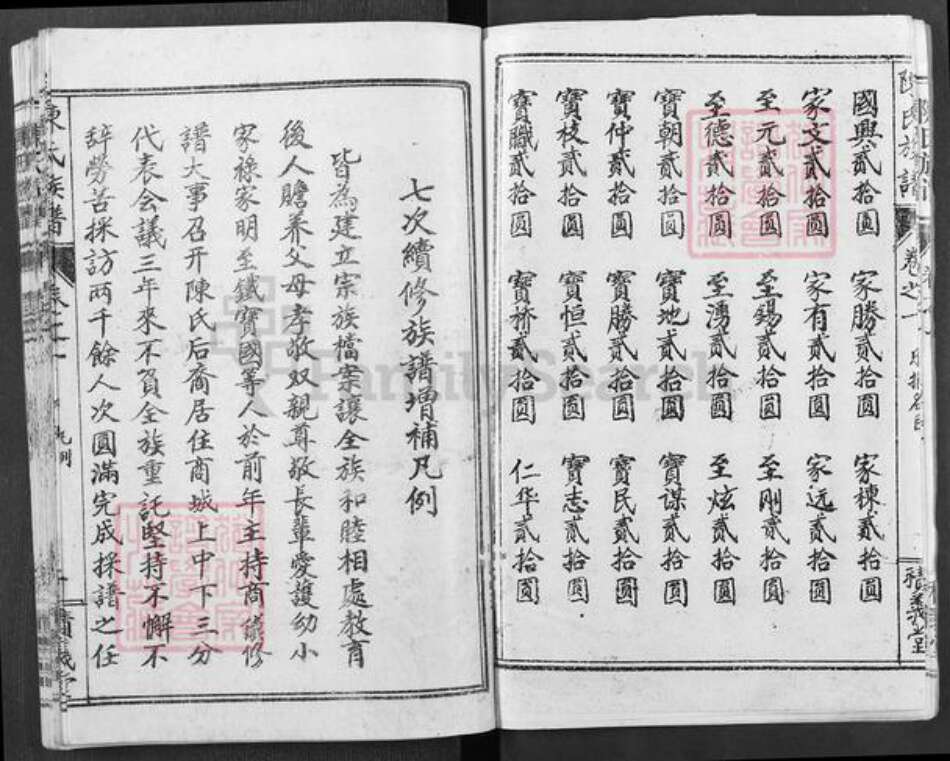 陳氏族譜
卷之一
積義堂
國興貳拾圓
家勝貳拾圓
家棟貳拾圓
家文貳拾圓
家有貳拾圓
家远貳拾圓
至元貳拾圓
至錫貳拾圓
至刚貳拾圓
至德貳拾圓
至湧貳拾圓
至炫貳拾圓
寶朝貳拾圓
寶地貳拾圓
寶謀貳拾圓
寶仲貳拾圓
寶勝貳拾圓
寶民貳拾圓
寶枝貳拾圓
寶恒貳拾圓
寶志貳拾圓
寶職貳拾圓
寶林貳拾圓
仁华貳拾圓
七次續修族譜增補凡例
皆為建立宗族檔案讓全族和睦相處教育
後人贍养父母孝敬双親尊敬長輩愛護幼小
家祿家明至鉄寶國等人於前年主持商議修
譜大事召开陳氏后裔居住商城上中下三分
代表会議三年來不負全族重託堅持不懈不
辞勞苦採訪两千餘人次圓滿完成採譜之任
陳氏族譜
凡例
FamilySearch